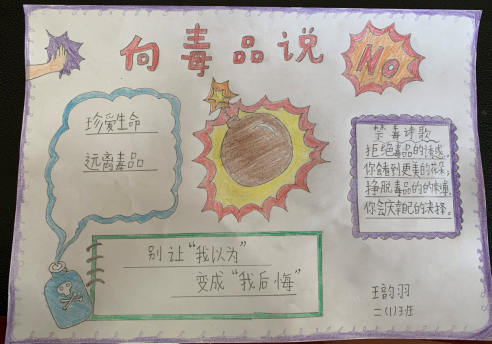 向毒品说
No
珍爱生命
远离毒品
禁毒诗歌
拒绝毒品的诱惑，
你会看到更美的花朵，
挣脱毒品的的
你会庆幸自己的决择。
别让“我以为”
变成“我后悔”
王韵羽
二（1）班